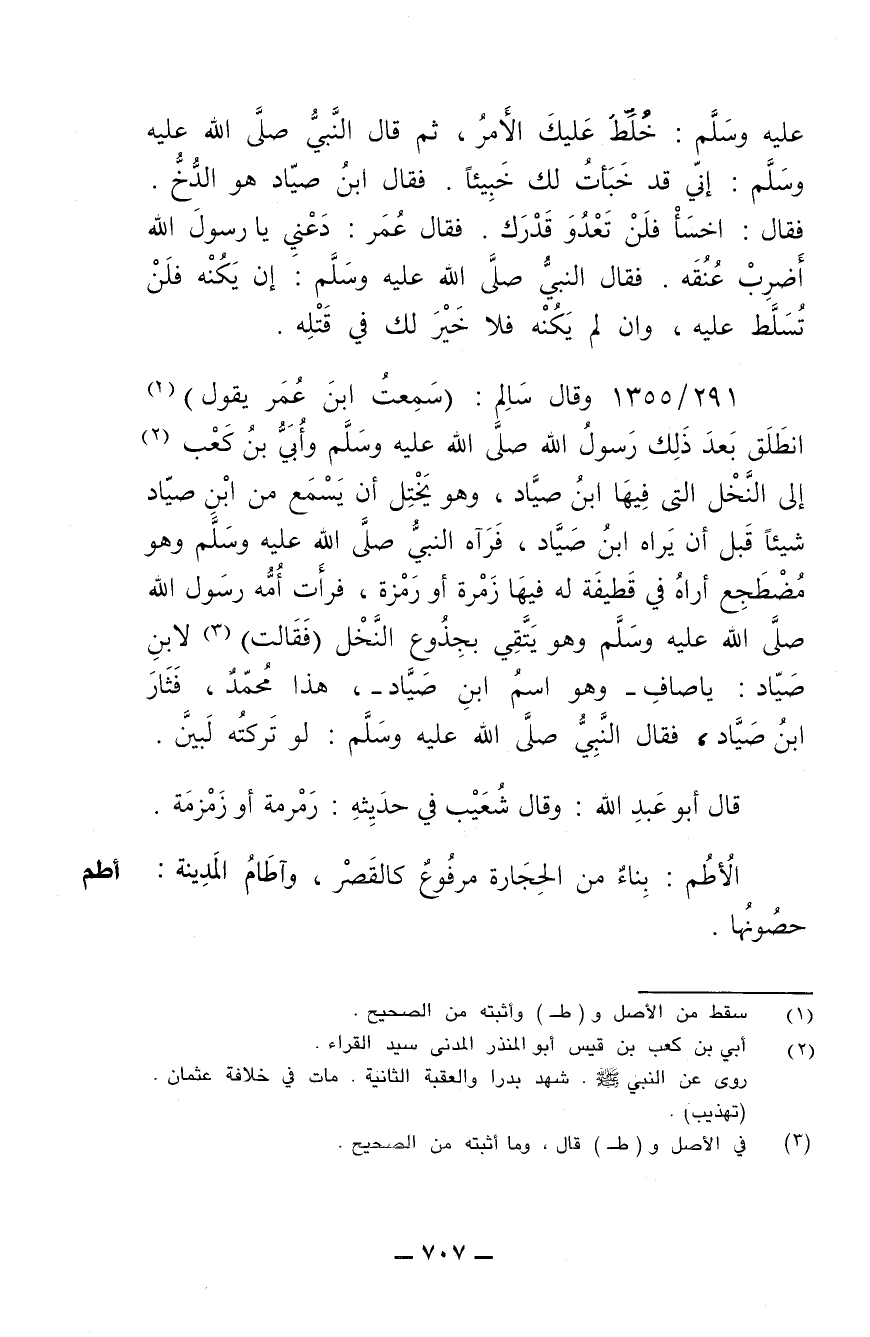 عليه وسَلَّم : خُلِّطَ عَليكَ الأَمرُ ، ثم قال النَّبيُّ صلَّى الله عليه
وسَلَّم : إنّي قد خَبَأتُ لك خَبِيئاً . فقال ابنُ صيّاد هو الدُّخُّ .
فقال : اخسَأْ فلَنْ تَعْدُوَ قَدْرَك . فقال عُمَر : دَعْنِي يا رسولَ الله
أَضرِبْ عُنُقَه . فقال النبيُّ صلَّى الله عليه وسَلَّم : إن يَكُنْه فلَنْ
تُسَلَّط عليه ، وان لم يَكُنْه فلا خَيْرَ لك في قَتْلِه .
١٣٥٥/٢٩١ وقال سَالِم : (سَمِعتُ ابنَ عُمَر يقول) (٢)
انطَلَق بَعدَ ذَلِك رَسولُ الله صلَّى الله عليه وسَلَّم وأُبَيُّ بنُ كَعْب (٢)
إلى النَّخْل التى فِيهَا ابنُ صيَّاد ، وهو يَخْتِل أن يَسْمَع من ابْنِ صيّاد
شيئاً قَبل أن يَراه ابنُ صَيَّاد ، فَرَآه النبيُّ صلَّى الله عليه وسَلَّم وهو
مُضْطَجِع أراهُ في قَطيفَة له فيهَا زَمْرة أو رَمْزة ، فرأَت أُمُّه رسَول الله
صلَّى الله عليه وسَلَّم وهو يَتَّقِي بجِذُوع النَّخْل (فَقَالت) (٣) لابنِ
صَيّاد : ياصافِ ـ وهو اسمُ ابنِ صَيَّاد ـ ، هذا مُحمّدٌ ، فَثَارَ
ابنُ صَيَّاد ، فقال النَّبيُّ صلَّى الله عليه وسَلَّم : لو تَركتُه لَبينَّ .
قال أبو عَبدِ الله : وقال شُعَيْب في حدَيِثهِ : رَمْرمة أو زَمْزمَة .
الأُطُم : بِناءٌ من الحِجَارة مرفُوعٌ كالقَصْر ، وآطَامُ المَدِينة : أطم
حصُونُها .
(١) سقط من الأصل و ( طـ ) وأثبته من الصحيح .
(٢) أبي بن كعب بن قيس أبو المنذر المدنى سيد القراء .
روى عن النبي ﷺ . شهد بدرا والعقبة الثانية . مات في خلافة عثمان .
(تهذيب) .
(٣) في الأصل و ( طـ ) قال ، وما أثبته من الصحيح .
ـ ٧٠٧ ـ